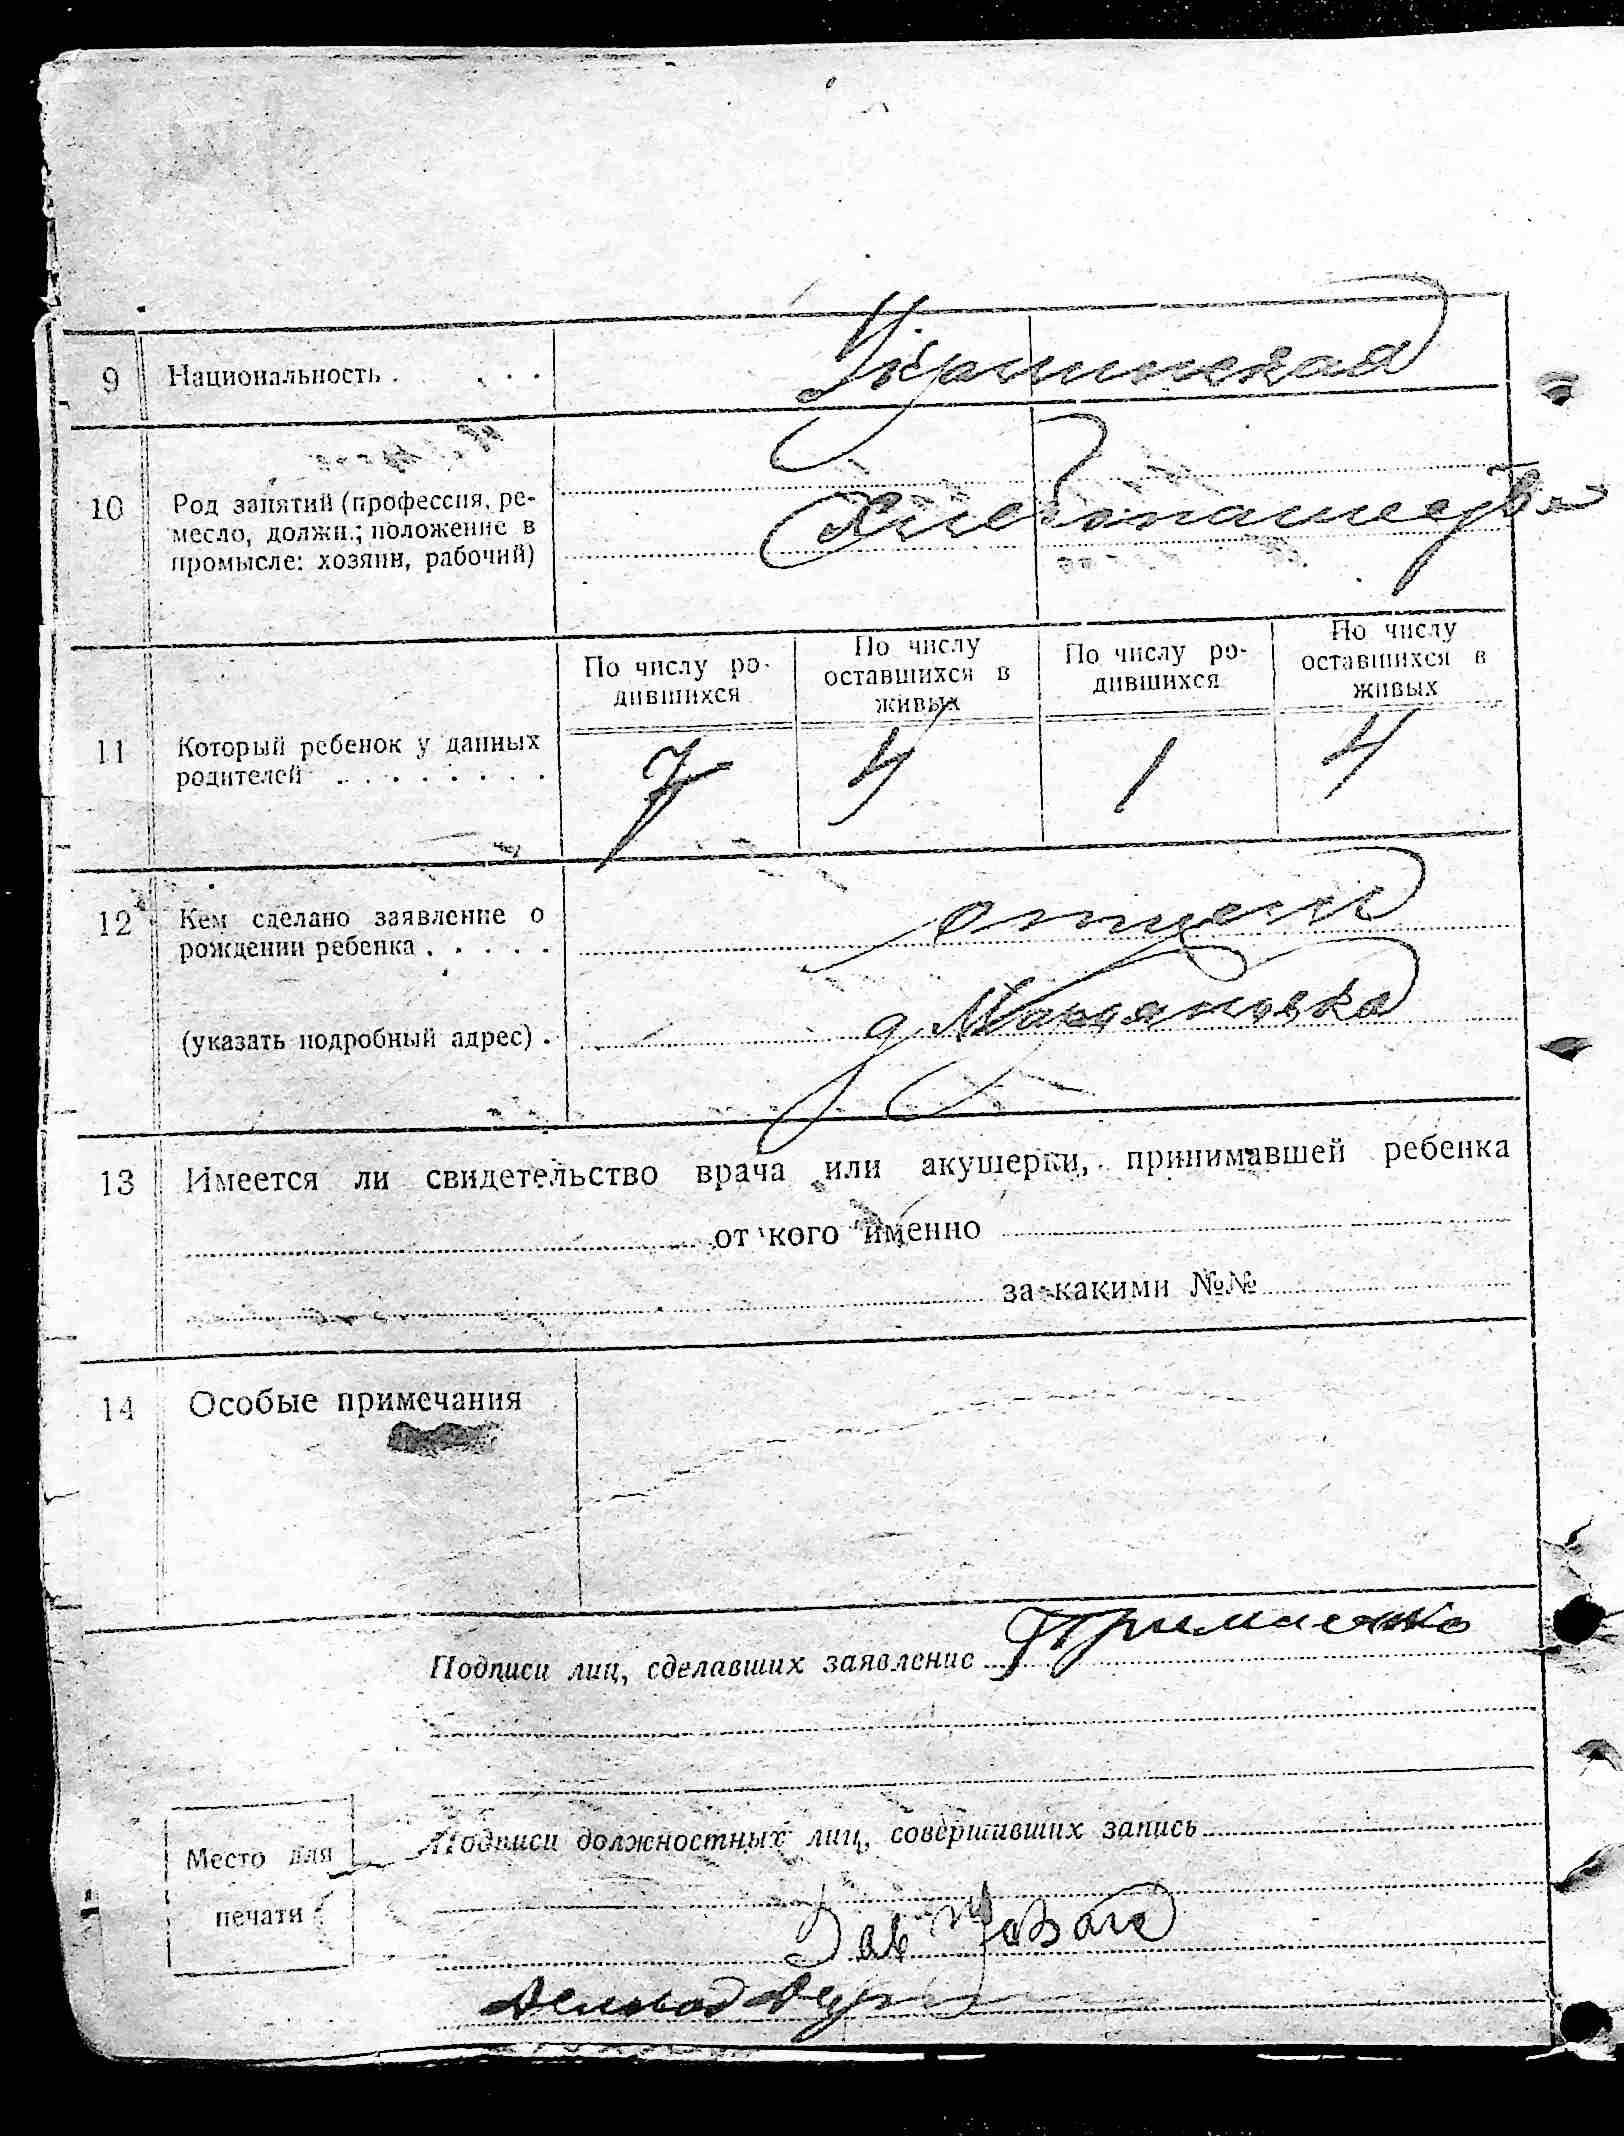 9 Национальность . . . . Украинская
10 Род занятий (профессия, ре-
месло, должн.; положение в
промысле: хозяин, рабочий)
Хлебопашество
По числу ро-
дившихся
По числу
оставшихся в
живых
По числу ро-
дившихся
По числу
оставшихся в
живых
11 Который ребенок у данных
родителей . . . . . . . .
7 4 1 4
12 Кем сделано заявление о
рождении ребенка . . . . .
отцем
(указать подробный адрес) . д. Марьяновка
13 Имеется ли свидетельство врача или акушерки, принимавшей ребенка
от кого именно
за какими №№
14 Особые примечания
Подписи лиц, сделавших заявление
Подписи должностных лиц, совершивших запись
Место для
печати
Зав
Деловод